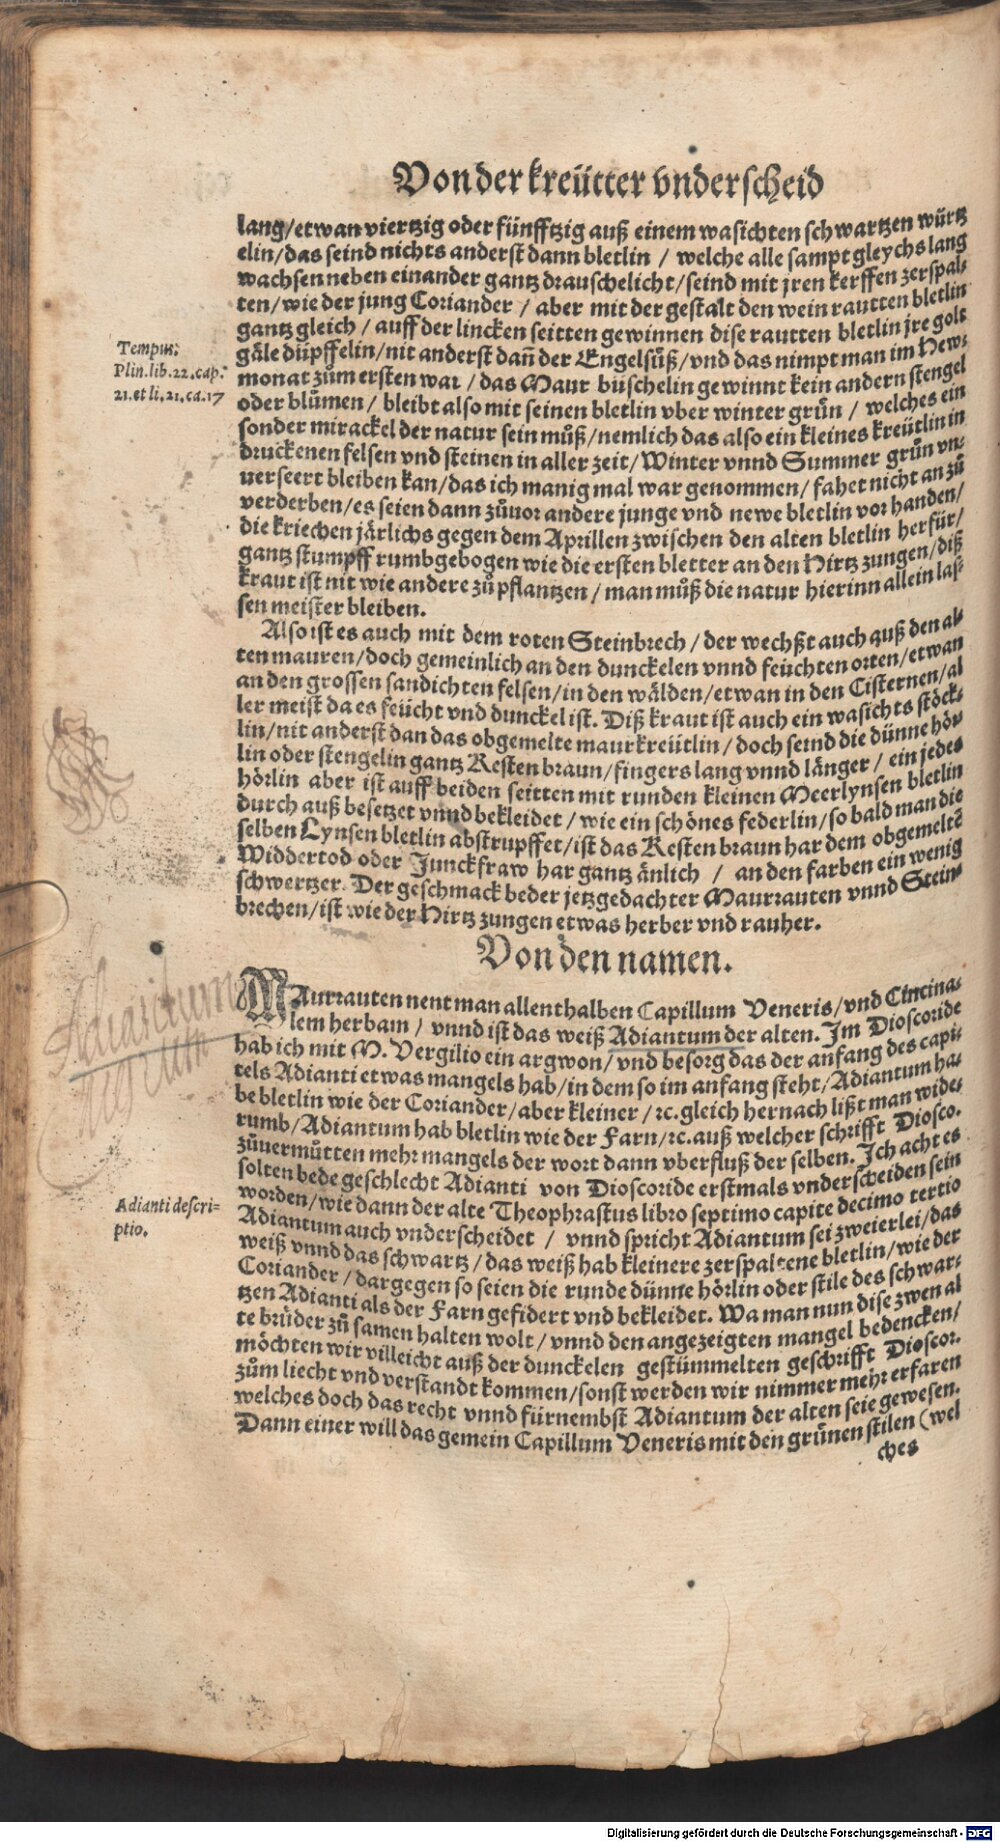 Von der kreütter vnderscheid
lang/etwan viertzig oder fünfftzig auß einem wasichten schwartzen würtz
elin/das seind nichts anderst dann bletlin / welche alle sampt gleychs lang
wachsen neben einander gantz drauschelicht/seind mit jren kerffen zerspal-
ten/wie der jung Coriander / aber mit der gestalt den wein rautten bletlin
gantz gleich / auff der lincken seitten gewinnen dise rautten bletlin jre golt
Tempus.
gäle düpffelin/nit anderst dañ der Engelsůß/vnd das nimpt man im Hew-
Plin.lib.22.cap.
monat zům ersten war / das Maur büschelin gewinnt kein andern stengel
21.et li.21.ca.17
oder blůmen / bleibt also mit seinen bletlin vber winter grůn / welches ein
sonder mirackel der natur sein můß/nemlich das also ein kleines kreütlin in
druckenen felsen vnd steinen in aller zeit/Winter vnnd Summer grůn vn-
uerseert bleiben kan/das ich manig mal war genommen/ fahet nicht an zů
verderben/es seien dann zůuor andere junge vnd newe bletlin vorhanden/
die kriechen järlichs gegen dem Aprillen zwischen den alten bletlin herfür/
gantz stumpff rumbgebogen wie die ersten bletter an den Hirtz zungen/diß
kraut ist nit wie andere zů pflantzen / man můß die natur hierinn allein las-
sen meister bleiben.
Also ist es auch mit dem roten Steinbrech / der wechßt auch auß den al-
ten mauren/doch gemeinlich an den dunckelen vnnd feüchten orten/etwan
an den grossen sandichten felsen/in den wälden/etwan in den Cisternen/al
ler meist da es feücht vnd dunckel ist. Diß kraut ist auch ein wasichts stöck-
lin/nit anderst dan das obgemelte maurkreütlin/doch seind die dünne hör-
lin oder stengelin gantz Kesten braun/fingers lang vnnd länger / ein jedes
hörlin aber ist auff beiden seitten mit runden kleinen Meerlynsen bletlin
durch auß besetzet vnnd bekleidet / wie ein schönes federlin/so bald man die
selben Lynsen bletlin abstrupffet/ist das Kesten braun har dem obgemeltē
Widdertod oder Junckfraw har gantz änlich / an den farben ein wenig
schwertzer. Der geschmack beder jetzgedachter Maurrauten vnnd Stein-
brechen/ist wie der Hirtz zungen etwas herber vnd rauher.
Von den namen.
MAurrauten nent man allenthalben Capillum Veneris/vnd Cincina-
lem herbam / vnnd ist das weiß Adiantum der alten. Im Dioscoride
hab ich mit M. Vergilio ein argwon/vnd besorg das der anfang des capi-
tels Adianti etwas mangels hab/in dem so im anfang steht/Adiantum ha-
be bletlin wie der Coriander/aber kleiner/ꝛc.gleich hernach lißt man wide-
rumb/Adiantum hab bletlin wie der Farn/ꝛc.auß welcher schrifft Diosco.
zůuermůtten mehr mangels der wort dann vberfluß der selben. Ich acht es
solten bede geschlecht Adianti von Dioscoride erstmals vnderscheiden sein
Adianti descri-
worden/wie dann der alte Theophrastus libro septimo capite decimo tertio
ptio.
Adiantum auch vnderscheidet / vnnd spricht Adiantum sei zweierlei/das
weiß vnnd das schwartz/das weiß hab kleinere zerspaltene bletlin/wie der
Coriander/dargegen so seien die runde dünne hörlin oder stile des schwar-
tzen Adianti als der Farn gefidert vnd bekleidet. Wa man nun dise zwen al
te brůder zů samen halten wolt/vnnd den angezeigten mangel bedencken/
möchten wir villeicht auß der dunckelen gestümmelten geschrifft Dioscor.
zům liecht vnd verstandt kommen/sonst werden wir nimmermehr erfaren
welches doch das recht vnnd fürnembst Adiantum der alten seie gewesen.
Dann einer will das gemein Capillum Veneris mit den grünen stilen (wel
ches
Digitalisierung gefördert durch die Deutsche Forschungsgemeinschaft - DFG